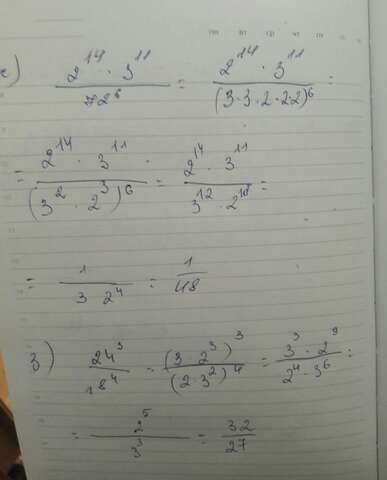 е) 2¹⁴ · 3¹¹ / 72⁶ = 2¹⁴ · 3¹¹ / (3·3·2·2·2)⁶ =
= 2¹⁴ · 3¹¹ / (3² · 2³)⁶ = 2¹⁴ · 3¹¹ / 3¹² · 2¹⁸ =
= 1 / 3 2⁴ = 1 / 48
з) 24³ / 18⁴ = (3 · 2³)³ / (2 · 3²)⁴ = 3³ · 2⁹ / 2⁴ · 3⁶ =
= 2⁵ / 3³ = 32 / 27